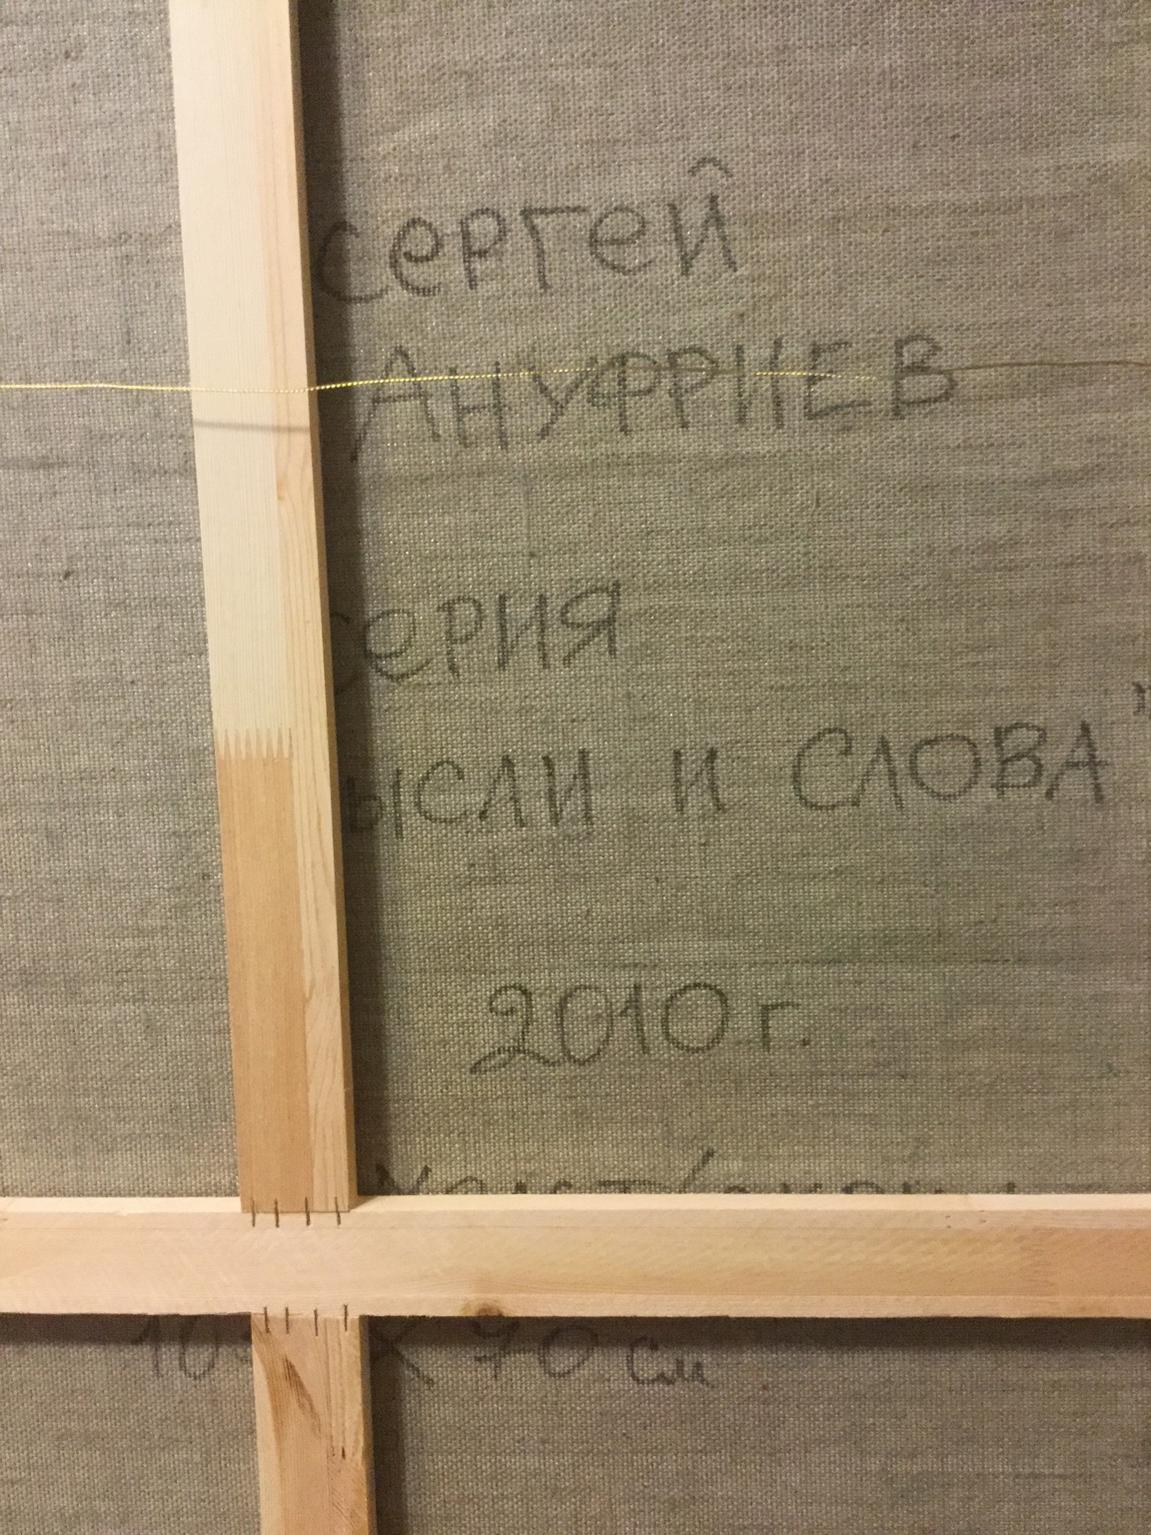 СЕРГЕЙ
АНУФРИЕВ
СЕРИЯ
ЫСЛИ И СЛОВА"
2010 г.
Х 70 см